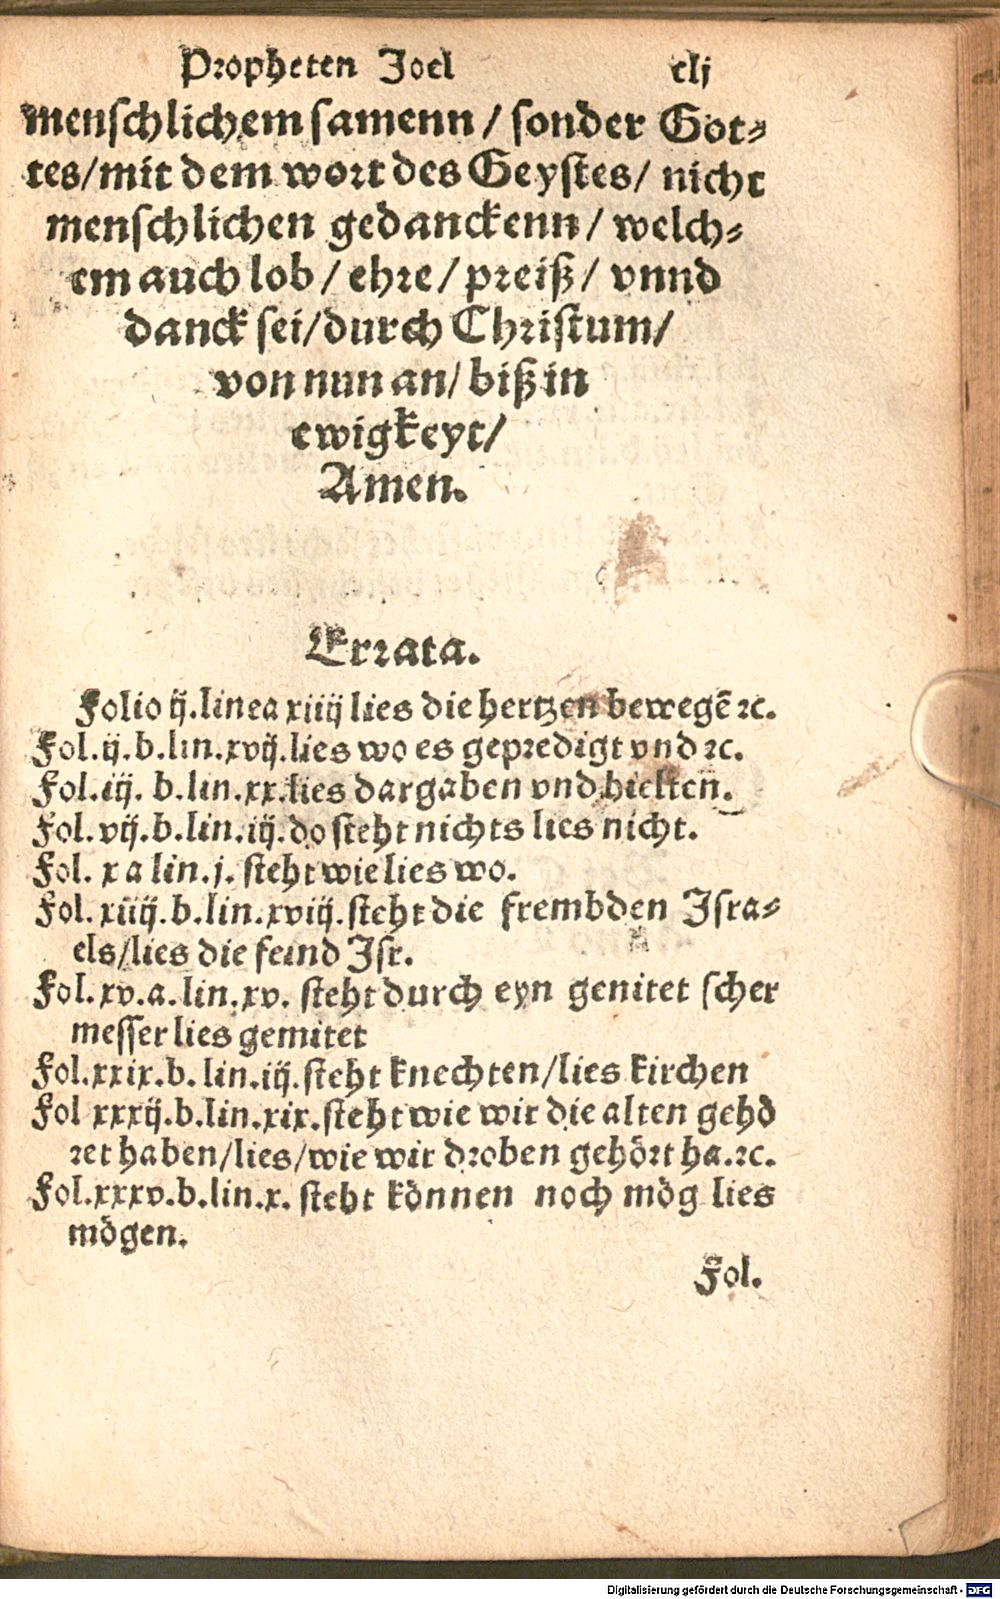 Propheten Joel clj
menſchlichem ſamenn / ſonder Got⸗
tes/mit dem wort des Geyſtes/ nicht
menſchlichen gedanckenn / welch⸗
em auch lob / ehre / preiß / vnnd
danck ſei/durch Chriſtum/
von nun an/ biß in
ewigkeyt/
Amen.
Errata.
Folio ij.linea xiiij lies die hertzen bewegē ꝛc.
Fol.ij.b.lin.xvij.lies wo es gepredigt vnd ꝛc.
Fol.iij. b.lin.xx.lies dargaben vnd hielten.
Fol.vij.b.lin.iij.do ſteht nichts lies nicht.
Fol. x a lin.j. ſteht wie lies wo.
Fol.xiiij.b.lin.xviij.ſteht die frembden Iſra⸗
els/lies die feind Iſr.
Fol.xv.a.lin.xv. ſteht durch eyn genitet ſcher
meſſer lies gemitet
Fol.xxix.b.lin.iij.ſteht knechten/lies kirchen
Fol xxxij.b.lin.xix.ſteht wie wir die alten gehö
ret haben/lies/wie wir droben gehört ha.ꝛc.
Fol.xxxv.b.lin.x. ſteht können noch mög lies
mögen.
Fol.
Digitalisierung gefördert durch die Deutsche Forschungsgemeinschaft - DFG